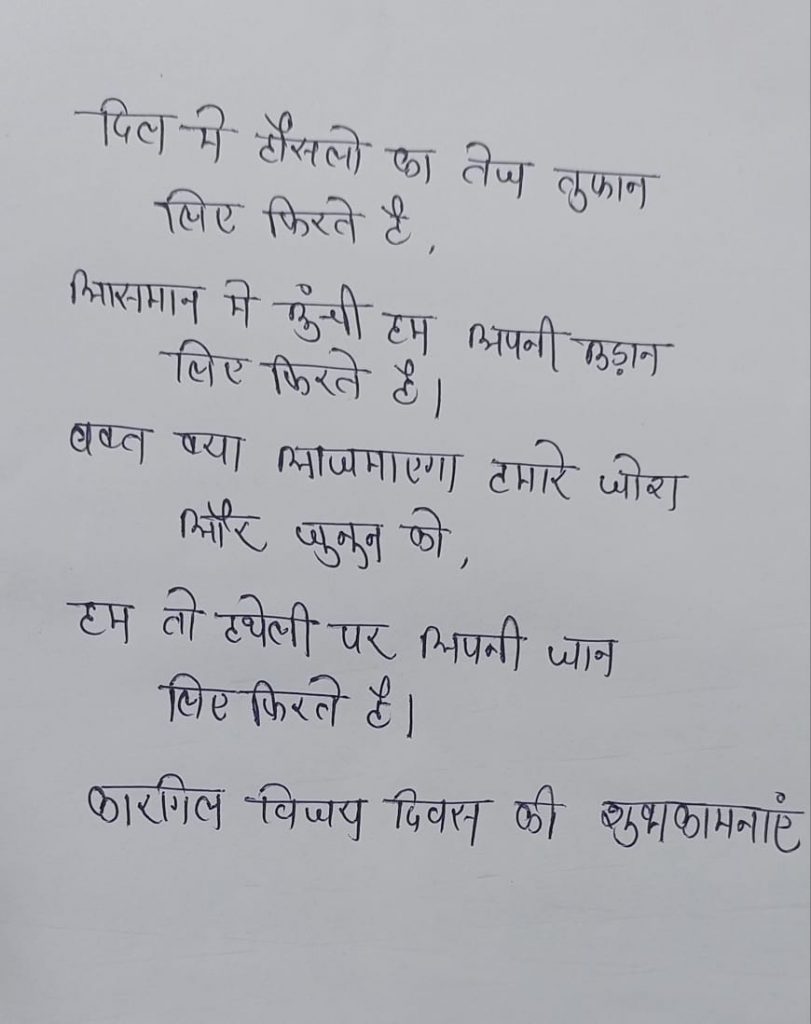 दिल मे हौसलो का तेज तुफान
लिए फिरते है,
आसमान मे ऊंची हम अपनी उड़ान
लिए फिरते है।
वक्त क्या आजमाएगा हमारे जोश
और जुनुन को,
हम तो हथेली पर अपनी जान
लिए फिरते है।
कारगिल विजय दिवस की शुभकामनाएं